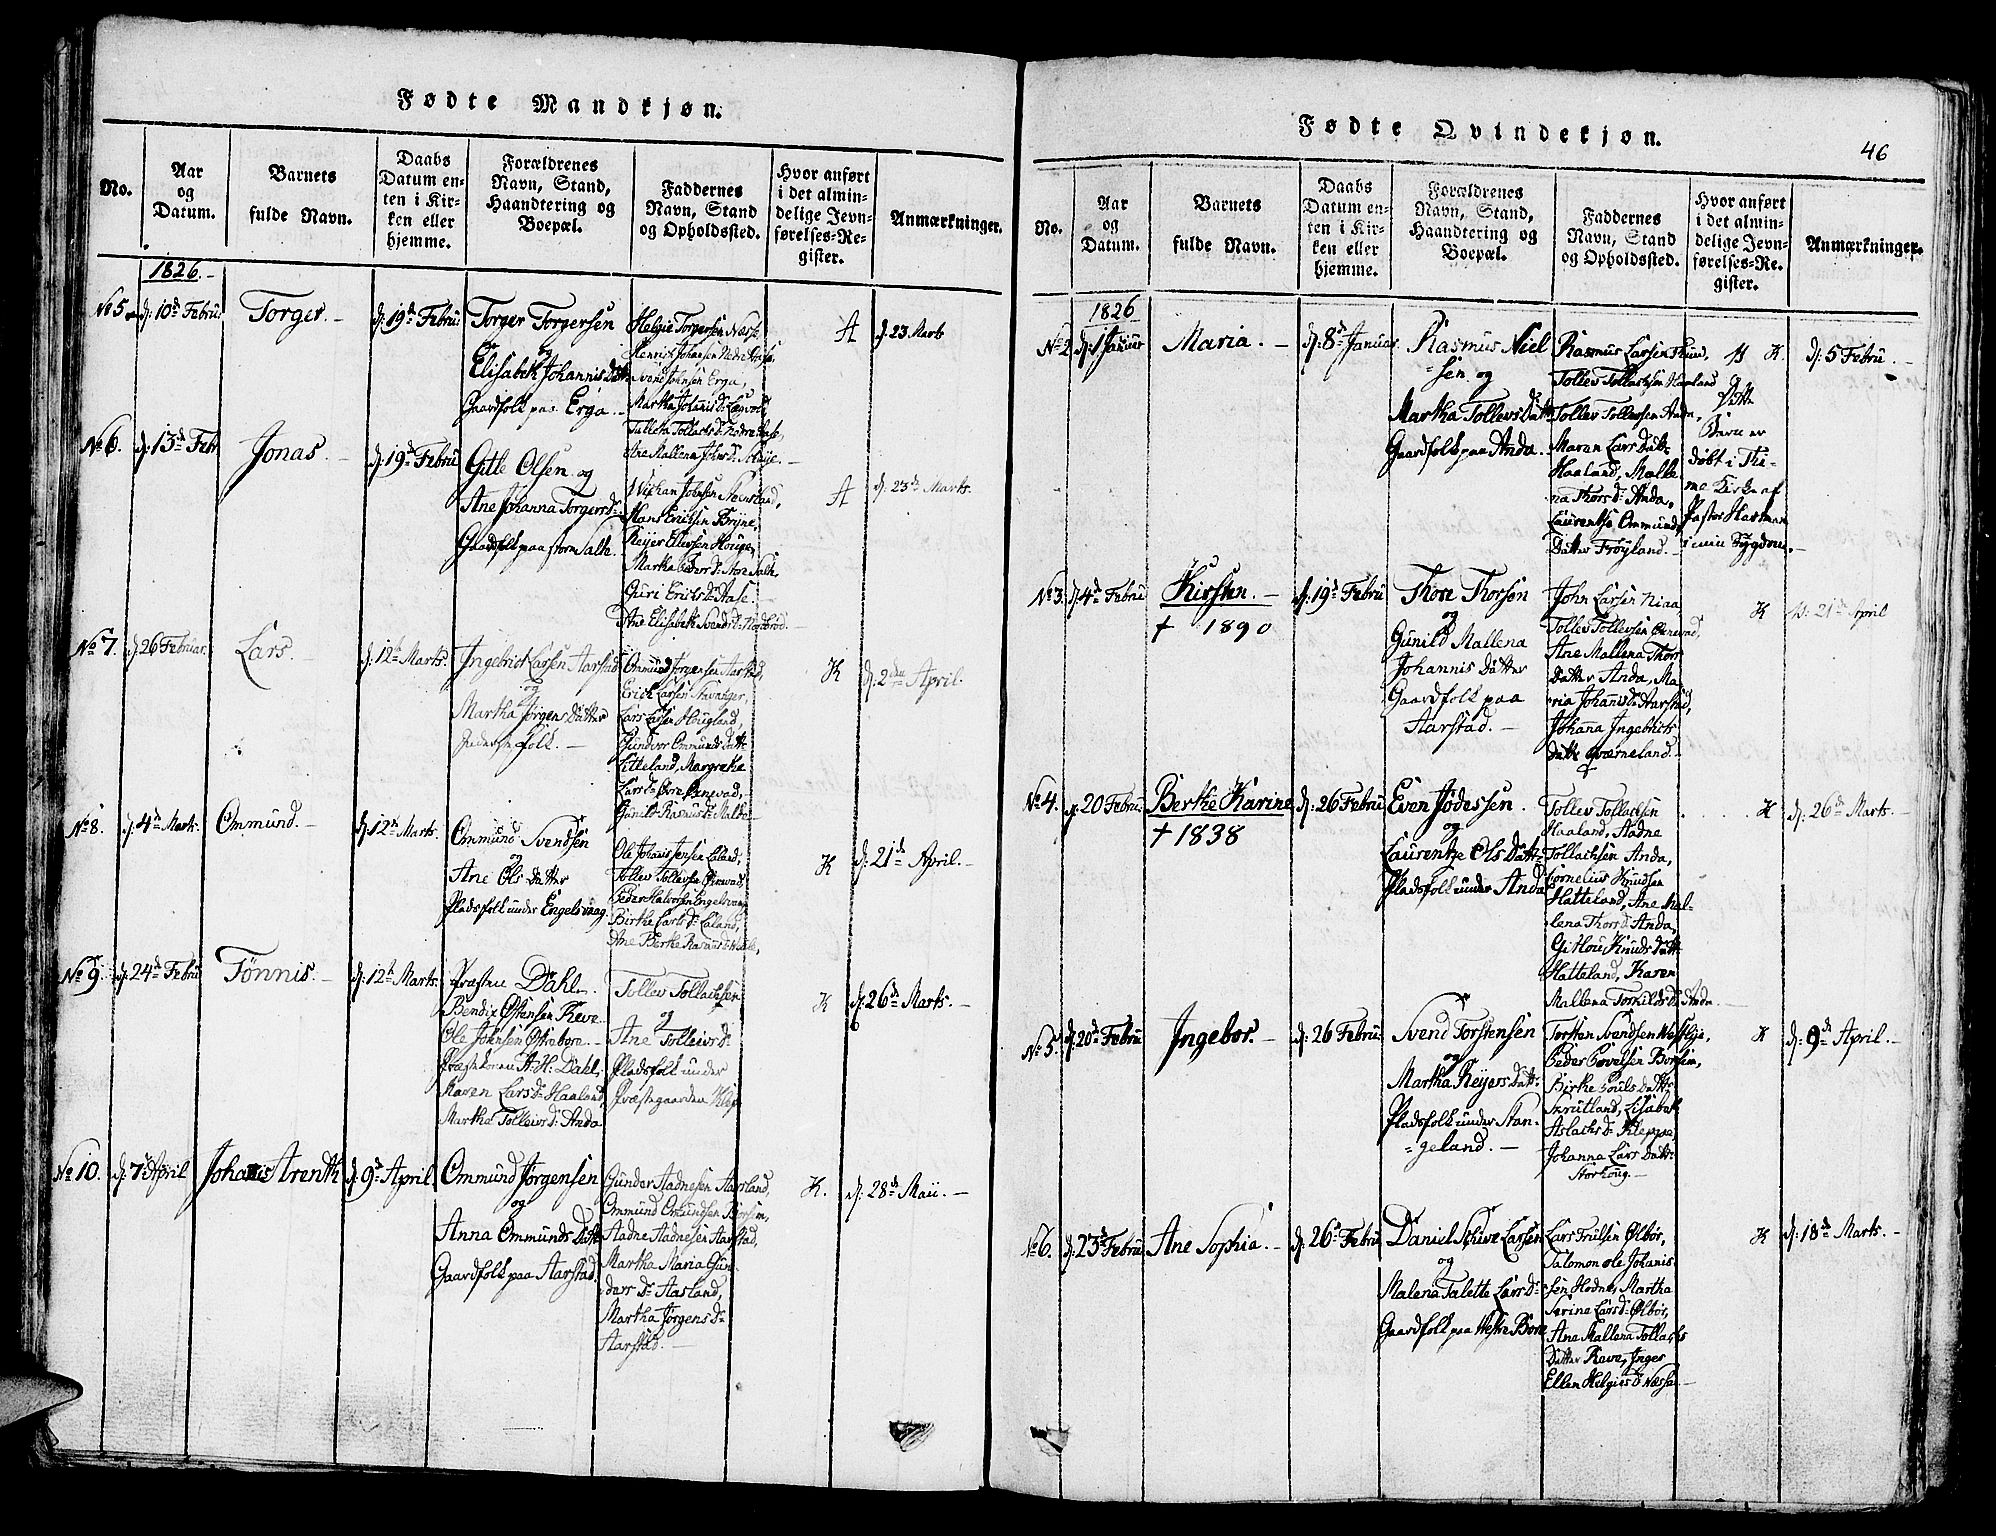 Fødte Mandkjøn.
No.
Aar
og
Datum.
Barnets
fulde Navn.
Daabs
Datum en-
ten i Kir-
ken eller
hjemme.
Forældrenes
Navn, Stand,
Haandtering og
Boepæl.
Faddernes
Navn, Stand
og Opholdssted.
Hvor anført
i det almin-
delige Jevn-
førelses-Re-
gister.
Anmærkninger.
1826.-
No 5
d: 10d Febru
Torger.-
d: 19d Febru:
Torger Torgersen
og
Elisabeth Johannis Datt:
Gaardfolk paa Erga.-
Helgie Torgersen Næsse
Henrich Johansen Nedre
Svend Johnsen Erga,
Martha Johannis D:
Ane Mallena Johns D:
A
d: 23 Marts
No 6.
d: 13d Febr.
Jonas.-
d: 19d Febru
Gitle Olsen og
Ane Johanna Torgers D:
Gaardfolk paa store Salte.
Johnsen
Hans Ericksen Bryne,
Reyer Ellevsen Houge,
Martha Peders D: Store Salte,
Guri Erichs D: Aase.
Ane Elisabeth Svends D:
A
d: 23d Marts.
No 7.
d: 26 Februar.
Lars.-
d: 12te Marts.
Ingebrict Larsen Aarstad
og
Martha Jørgens Datter
folk.-
Ommund Jørgensen Aarstad,
Erick Larsen
Lars Larsen Hougland,
Gunver Ommunds Datt:
Litteland, Margrethe
Lars D: Øvre Ønevad,
Gunild Rasmus D: Malde-
K
d: 2den April.
No 8.
d: 4de Mart:
Ommund.-
d: 12te Marts.
Ommund Svendsen
og
Ane Ols Datter
Pladsfolk under Engelsvaag
Ole Johannis Jensen Laland,
Tollev Tollevsen Ønevad,
Peder Halvorsen Engelsvaag
Birthe Lars D: Laland,
Ane Berthe Rasmus D:
K
d: 21d April.-
No 9.
d: 24d Febru
Tønnis.-
d: 12te Marts.
Præsten Dahl.
Bendix Østensen Reve
Ole Johnsen
Præstekonen A: H: Dahl,
Karen Lars D: Haaland,
Martha Tolleivs D: Anda
Tollev Tollachsen
og
Ane Tolleivs D:
Pladsfolk under
Præstegaarden Klep
K
d: 26d Marts.-
No 10.
d: 7d April
Johannis Arenth
d: 9d April
Ommund Jørgensen
og
Anna Ommunds Datt:
Gaardfolk paa Aarstad.
Gunder Aadnesen Aasland,
Ommund Omundsen Borsim,
Aadne Aadnesen Aarstad,
Martha Maria Gun-
ders D: Aasland,
Martha Jørgens D:
Aarstad.-
K.
d: 28d Maii.-
Fødte Qvindekjøn.
46
No.
Aar
og
Datum.
Barnets
fulde Navn.
Daabs
Datum en-
ten i Kir-
ken eller
hjemme.
Forældrenes
Navn, Stand,
Haandtering og
Boepæl.
Faddernes
Navn, Stand
og Opholdssted.
Hvor anført
i det almin-
delige Jevn-
førelses-Re-
gister.
Anmærkninger.
1826
No 2
d: 1 Januar
Maria.-
d: 8d Januar.
Rasmus Niel
=sen og
Martha Tollevs Datt:
Gaardfolk paa Anda.
Rasmus Larsen Thue,
Tollev Tollachsen Haaland
Tollev Tollevsen Anda,
Maren Lars Datt:
Haaland, Malle
na Thors D: Anda,
Laurentse Ommund
Datter Frøyland.-
K.
Dette
Barn er
døbt i Thi-
me Kirke af
Pastor Hartman
i min Sygdom.-
d: 5 Febru.-
No 3.
d: 4d Febru
Kirsten.-
† 1890
d: 19d Febru
Thore Thorsen
og
Gunild Mallena
Johannis Datter
Gaardfolk paa
Aarstad.-
John Larsen Niaa
Tollev Tollevsen Ønevad,
Ane Mallena Thors
Datter Anda, Ma
ria Johannis D: Aarstad,
Johanna Ingebrits
Datt: Qværneland.-
K
d: 21d April
No 4.
d: 20 Febru
Berthe Karine
† 1838
d: 26 Febru
Even Jødessen.
og
Laurentze Ols Datt:
Pladsfolk under Anda
Tollev Tollachsen
Haaland, Aadne
Tollachsen Anda,
Cornelius Knudsen
Hatteland, Ane Mal-
lena Thors D: Anda,
Gitlou Knuds Datt:
Hatteland, Karen
Mallena Torkilds D: Anda
K
d: 26d Marts.-
No 5.
d: 20d Febru
Ingebor.-
d: 26 Febru
Svend Torstensen
og
Martha Reyers Datt:
Pladsfolk under Stan-
=geland.-
Torsten Svendsen Westlye,
Peder Povelsen Borsim,
Birthe Pouls Datt:
Skrutland, Lisabeth
Aslachs D: Kleppe,
Johanna Lars Datt:
Storhoug.-
K
d: 9d April.-
No 6.
d: 23d Febru
Ane Sophia.-
d: 26d Febru
Daniel Schive Larsen
og
Malena Talette Lars D:
Gaardfolk paa Westre Bore
Lars Trulsen Ølbør,
Talomon ole Johanis
sen Hodne, Martha
Serine Lars D: Ølbør,
Ane Mallena Tollachs
Datter Reve, Inger
Ellen Helgies D: Næsse-
K
d: 18d Marts.-